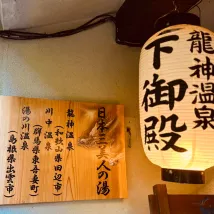 龍神温泉
下御殿
日本三美人の湯
龍神温泉
(和歌山県田辺市)
川中温泉
(群馬県東吾妻町)
湯の川温泉
(島根県出雲市)